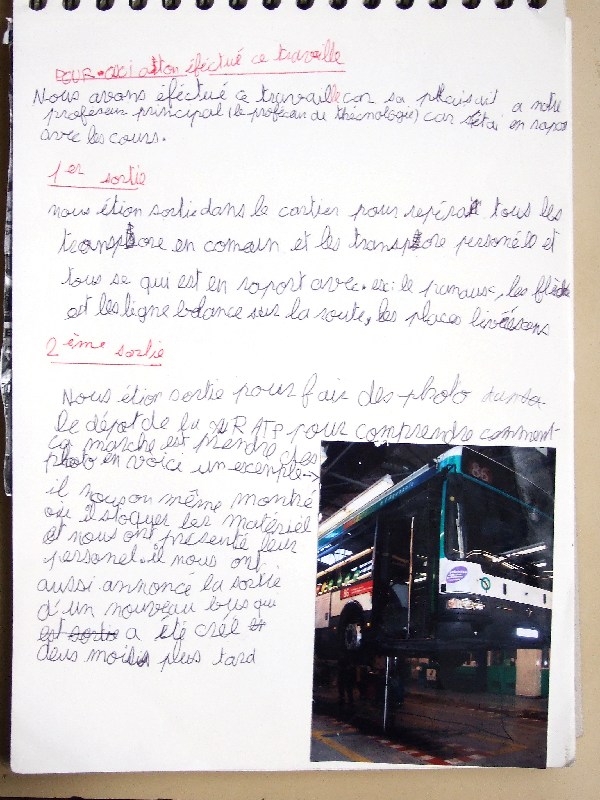 POUR.QUOI atton éféctué ce travaille
Nous avons éféctué ce travaille car sa plaisuit a notre
profeseur principal (le profeseur de thécnologie) car s'étai en raport
avec les cours.
1er sortie
nous étion sortie dans le cartier pour repérait tous les
transpore en comain et les transpore personélé et
tous se qui est en raport avec. ex: le panaux, les flèche
est les ligne blance sur la route, les places livérésons
2ème sortie
Nous étion sortie pour fair des photo
le dépot de la RATP pour comprendre comment
ça marche est prendre des
photo en voice un exemple →
il nous on même montré
où il stoquer les matériel
et nous ont présenté leur
personel. il nous ont
aussi annoncé la sortie
d'un nouveau bus qui
est sortie a été créé et
deus mois plus tard
86
86